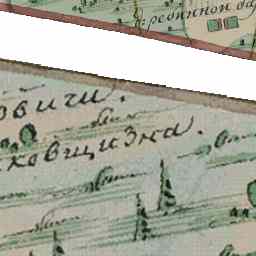 ребинной ва
овичи.
ковщизна.